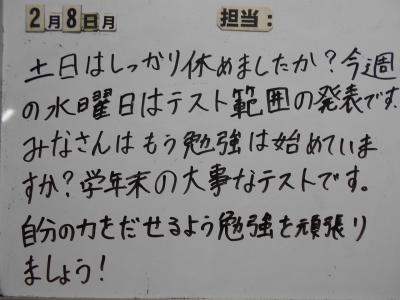 2月8日月 担当:
土日はしっかり休めましたか?今週
の水曜日はテスト範囲の発表です。
みなさんはもう勉強は始めていま
すか?学年末の大事なテストです。
自分の力をだせるよう勉強を頑張り
ましょう!